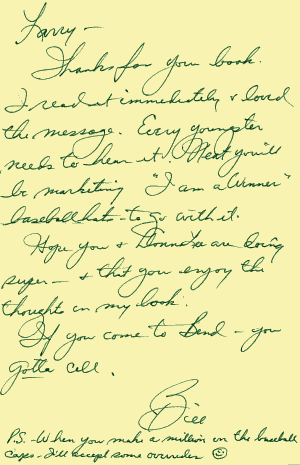 Larry —
Thanks for your book.
I read it immediately & loved
the message. Every youngster
needs to hear it! Next you'll
be marketing "I am a Winner"
baseball hats to go with it.
Hope you & Donna Lee are doing
super — & that you enjoy the
thoughts in my book.
If you come to Bend — you
gotta call.
Bill
P.S. - When you make a million on the baseball
caps - I'll accept some overrides ☺